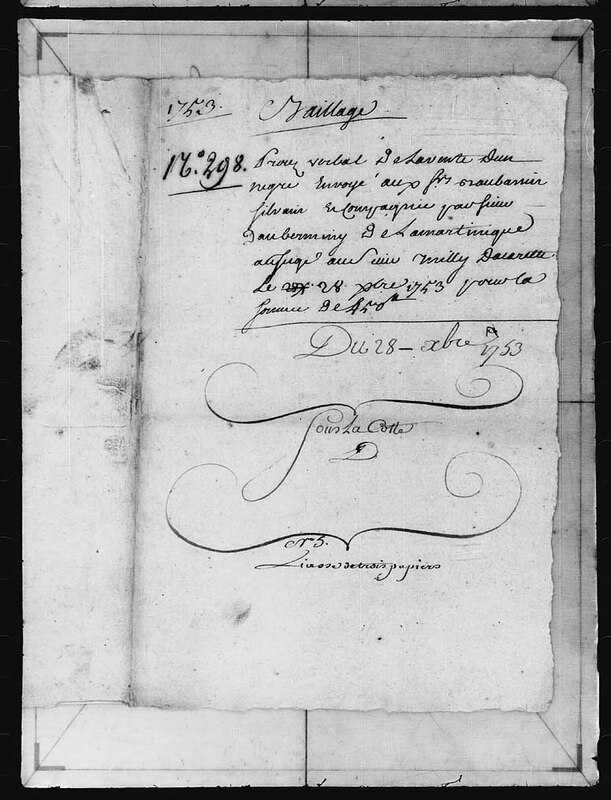 1753. Baillage
N.° 298. Procez verbal De Lavente Dun
negre Envoyé aux Srs
Silvain En Compagnie par Sieur
Daubermin De Lamartinique
adjugé au Sieur Milly Dacarette
Le 28 xbre 1753 pour La
somme de 450ᵗᵗ
Du 28 - xbre 1753
Sous La Cotte
D
No 5.
Liasse de trois papiers